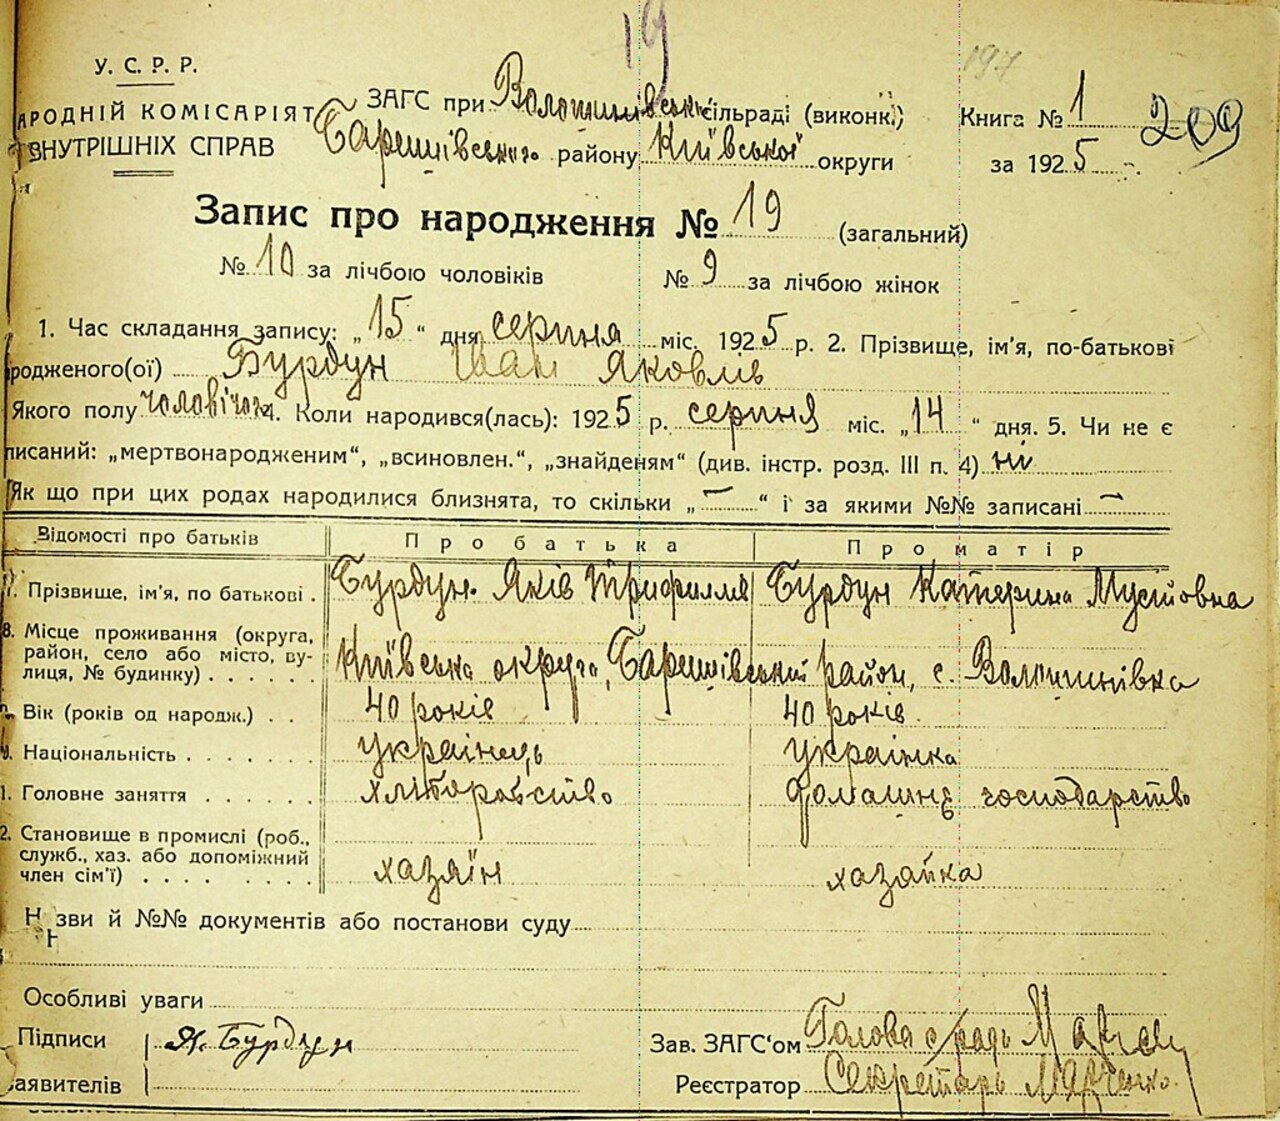 19
197
У. С. Р. Р.
АРОДНІЙ КОМІСАРІЯТ
ВНУТРІШНІХ СПРАВ
ЗАГС при Волошинівській сільраді (виконк.)
Баришівського району Київської округи
Книга № 1 209
за 1925
Запис про народження № 19 (загальний)
№ 10 за лічбою чоловіків № 9 за лічбою жінок
1. Час складання запису: „15“ дня серпня міс. 1925 р. 2. Прізвище, ім’я, по-батькові
родженого(ої) Бурдун Іван Яковлів
Якого полу чоловічого 4. Коли народився(лась): 1925 р. серпня міс. „14“ дня. 5. Чи не є
писаний: „мертвонародженим“, „всиновлен.“, „знайденям“ (див. інстр. розд. III п. 4) ні
Як що при цих родах народилися близнята, то скільки „—“ і за якими №№ записані —
Відомості про батьків Про батька Про матір
7. Прізвище, ім’я, по батькові . Бурдун Яків Бурдун Катерина
8. Місце проживання (округа,
район, село або місто, ву-
лиця, № будинку) . . . . . . Київська округа, Баришівський район, с. Волошинівка
Вік (років од народж.) . . 40 років 40 років
Національність . . . . . . . українець українка
1. Головне заняття . . . . . . хліборобство домашнє господарство
2. Становище в промислі (роб.,
служб., хаз. або допоміжний
член сім’ї) . . . . . . . . хазяїн хазяйка
Н зви й №№ документів або постанови суду
Особливі уваги
Підписи Я. Бурдун Зав. ЗАГС‘ом Голова с/ради
аявителів Реєстратор Секретарь Марченко